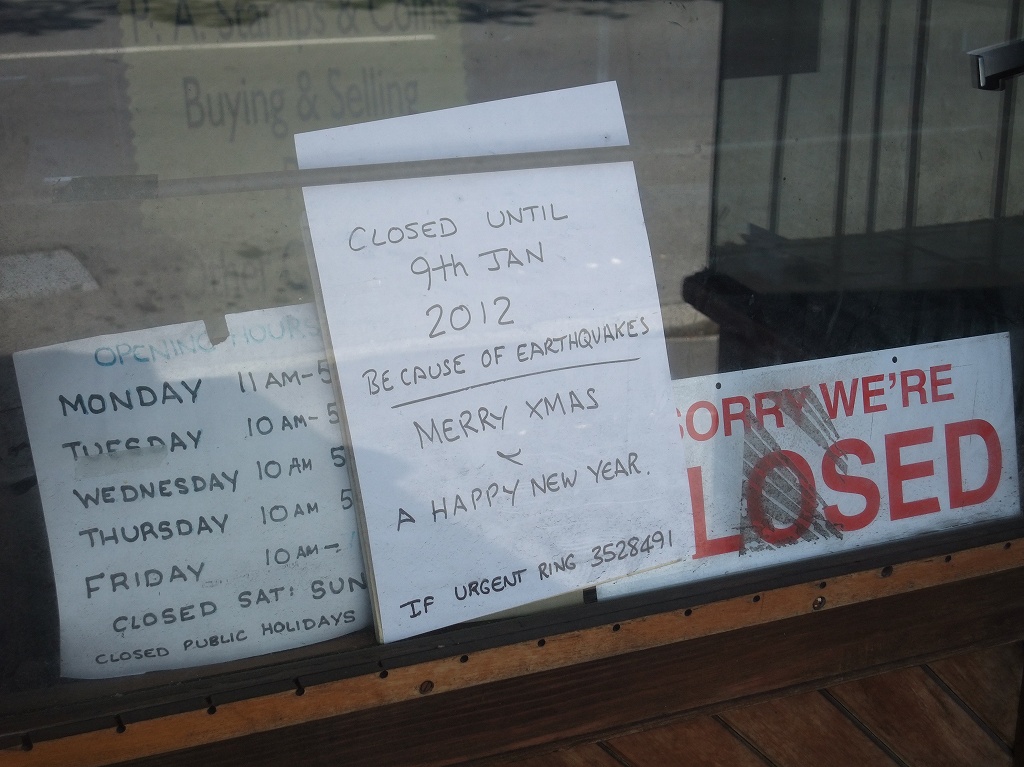 P. A. Stamps & Coins
Buying & Selling
CLOSED UNTIL
9th JAN
2012
BECAUSE OF EARTHQUAKES
MERRY XMAS
A HAPPY NEW YEAR.
IF URGENT RING 3528491
OPENING HOURS
MONDAY 11 AM-5
TUESDAY 10 AM-5
WEDNESDAY 10 AM 5
THURSDAY 10 AM 5
FRIDAY 10 AM-
CLOSED SAT: SUN
CLOSED PUBLIC HOLIDAYS
SORRY WE'RE
LOSED